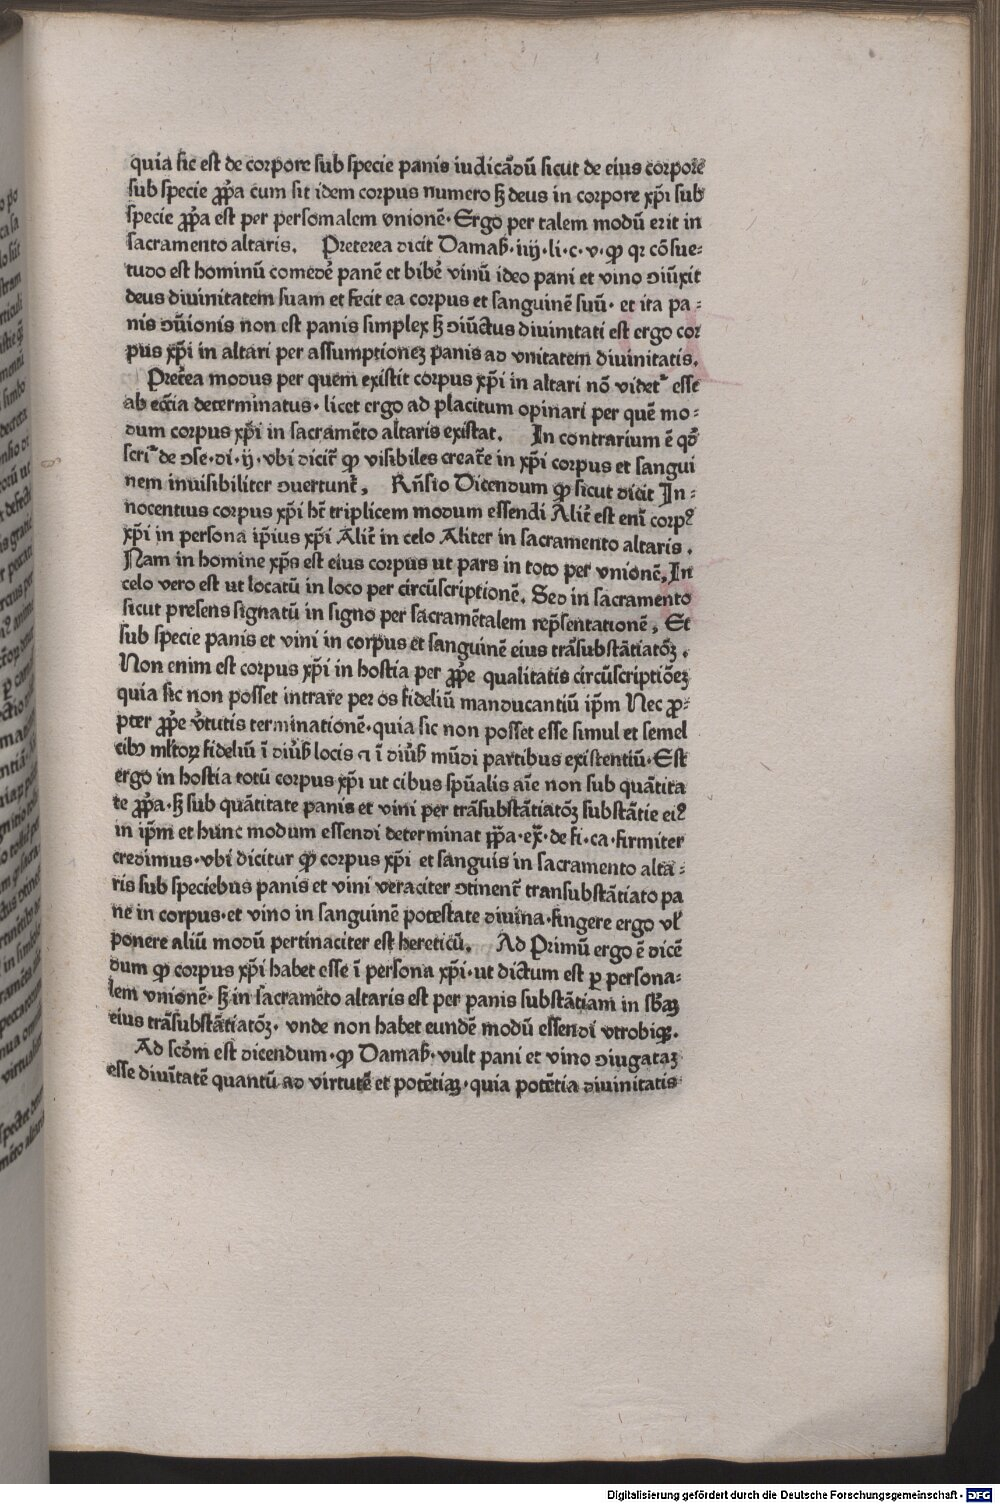 quia sic est de corpore sub specie panis iudicãdũ sicut de eius corpore
sub specie ꝓpͥa cum sit idem corpus numero sꝫ deus in corpore xp̃i sub
specie ꝓpͥa est per personalem vnionẽ· Ergo per talem modũ erit in
sacramento altaris. Preterea dicit Damaß·iiij·li·c·v·ꝙ qꝛ cõsue⸗
tudo est hominũ comedẽ panẽ et bibẽ vinũ ideo pani et vino ↄiũxit
deus diuinitatem suam et fecit ea corpus et sanguinẽ suũ· et ita pa⸗
nis ↄ̃uionis non est panis simplex sꝫ ↄiũctus diuinitati est ergo cor
pus xp̃i in altari per assumptioneꝫ panis ad vnitatem diuinitatis.
Pret̃ea modus per quem existit corpus xp̃i in altari nõ videt᷑ esse
ab ecc̃ia determinatus· licet ergo ad placitum opinari per quẽ mo⸗
dum corpus xp̃i in sacramẽto altaris existat. In contrarium ẽ qđ
scri᷑ de ↄse·di·ij·vbi dicit᷑ ꝙ visibiles creat̃e in xp̃i corpus et sangui
nem inuisibiliter ↄuertunt᷑. Rñsio Dicendum ꝙ sicut dicit In⸗
nocentius corpus xp̃i hꝫ triplicem modum essendi Alit̃ est eni᷑ corpꝰ
xp̃i in persona ip̃ius xp̃i Alit̃ in celo Aliter in sacramento altaris.
Nam in homine xp̃s est eius corpus ut pars in toto per vnionẽ. In
celo vero est ut locatũ in loco per circũscriptionẽ. Sed in sacramento
sicut presens signatũ in signo per sacramẽtalem rep̃sentationẽ. Et
sub specie panis et vini in corpus et sanguinẽ eius trãsubstãtiatõꝫ.
Non enim est corpus xp̃i in hostia per ꝓpͥe qualitatis circũscriptiõeꝫ
quia sic non posset intrare per os fideliũ manducantiũ ip̃m Nec ꝓ⸗
pter ꝓpͥe ṽtutis terminationẽ·quia sic non posset esse simul et semel
cibꝰ ml̃toꝝ fideliũ ĩ diũß locis ⁊ ĩ diũß mũdi partibus existentiũ· Est
ergo in hostia totũ corpus xp̃i ut cibus spũalis aĩe non sub quãtita
te ꝓpͥa·sꝫ sub quãtitate panis et vini per trãsubstãtiatõꝫ substãtie eiꝰ
in ip̃m et hunc modum essendi determinat pp̃a·ex᷑·de fi·ca·firmiter
credimus·vbi dicitur ꝙ corpus xp̃i et sanguis in sacramento alta⸗
ris sub speciebus panis et vini veraciter ↄtinent᷑ transubstãtiato pa
ne in corpus·et vino in sanguinẽ potestate diuina·fingere ergo vl̃
ponere aliũ modũ pertinaciter est hereticũ. Ad Primũ ergo ẽ dicẽ
dum ꝙ corpus xp̃i habet esse ĩ persona xp̃i·ut dictum est ꝑ persona⸗
lem vnionẽ· sꝫ in sacramẽto altaris est per panis substãtiam in sb̃aꝫ
eius trãsubstãtiatõꝫ· vnde non habet eundẽ modũ essendi vtrobiqꝫ.
Ad scđm est dicendum·ꝙ Damaß·vult pani et vino ↄiugataꝫ
esse diuĩtatẽ quantũ ad virtutẽ et potẽtiaꝫ·quia potẽtia diuinitatis
Digitalisierung gefördert durch die Deutsche Forschungsgemeinschaft - DFG